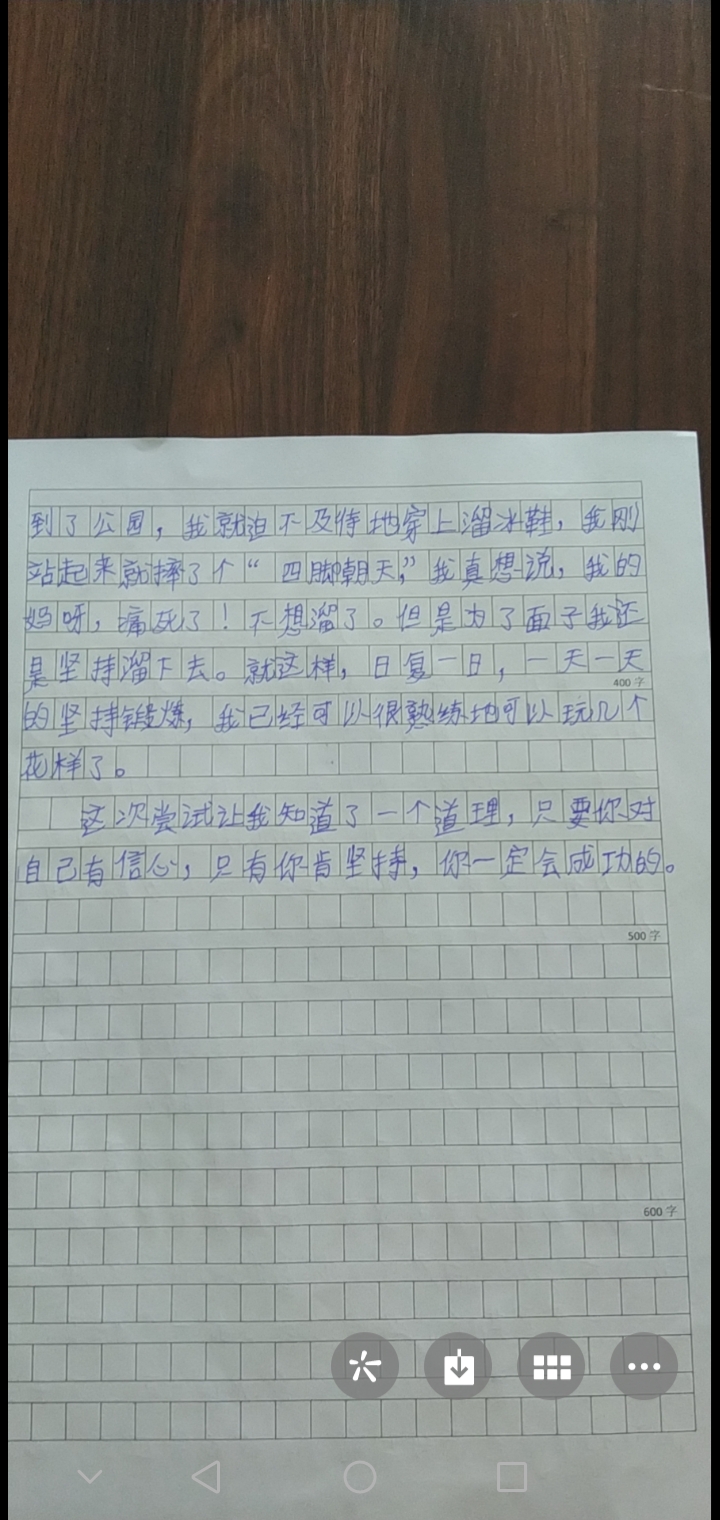 到了公园，我就迫不及待地穿上溜冰鞋，我刚
站起来就摔了个“四脚朝天”，我真想说，我的
妈呀，痛死了！不想溜了。但是为了面子我还
是坚持溜下去。就这样，日复一日，一天一天
400字
的坚持锻炼，我已经可以很熟练地可以玩几个
花样了。
这次尝试让我知道了一个道理，只要你对
自己有信心，只有你肯坚持，你一定会成功的。
500字
600字